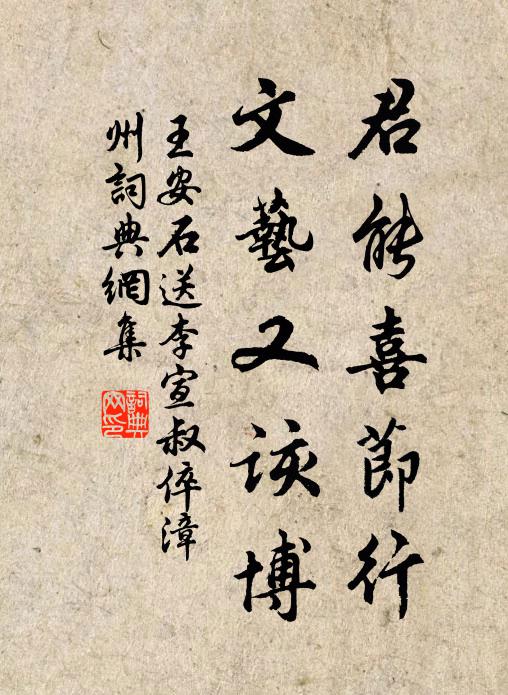 君能喜節行
文藝又該博
王安石送李宣叔倅漳
州詞典網集
詞典
網印